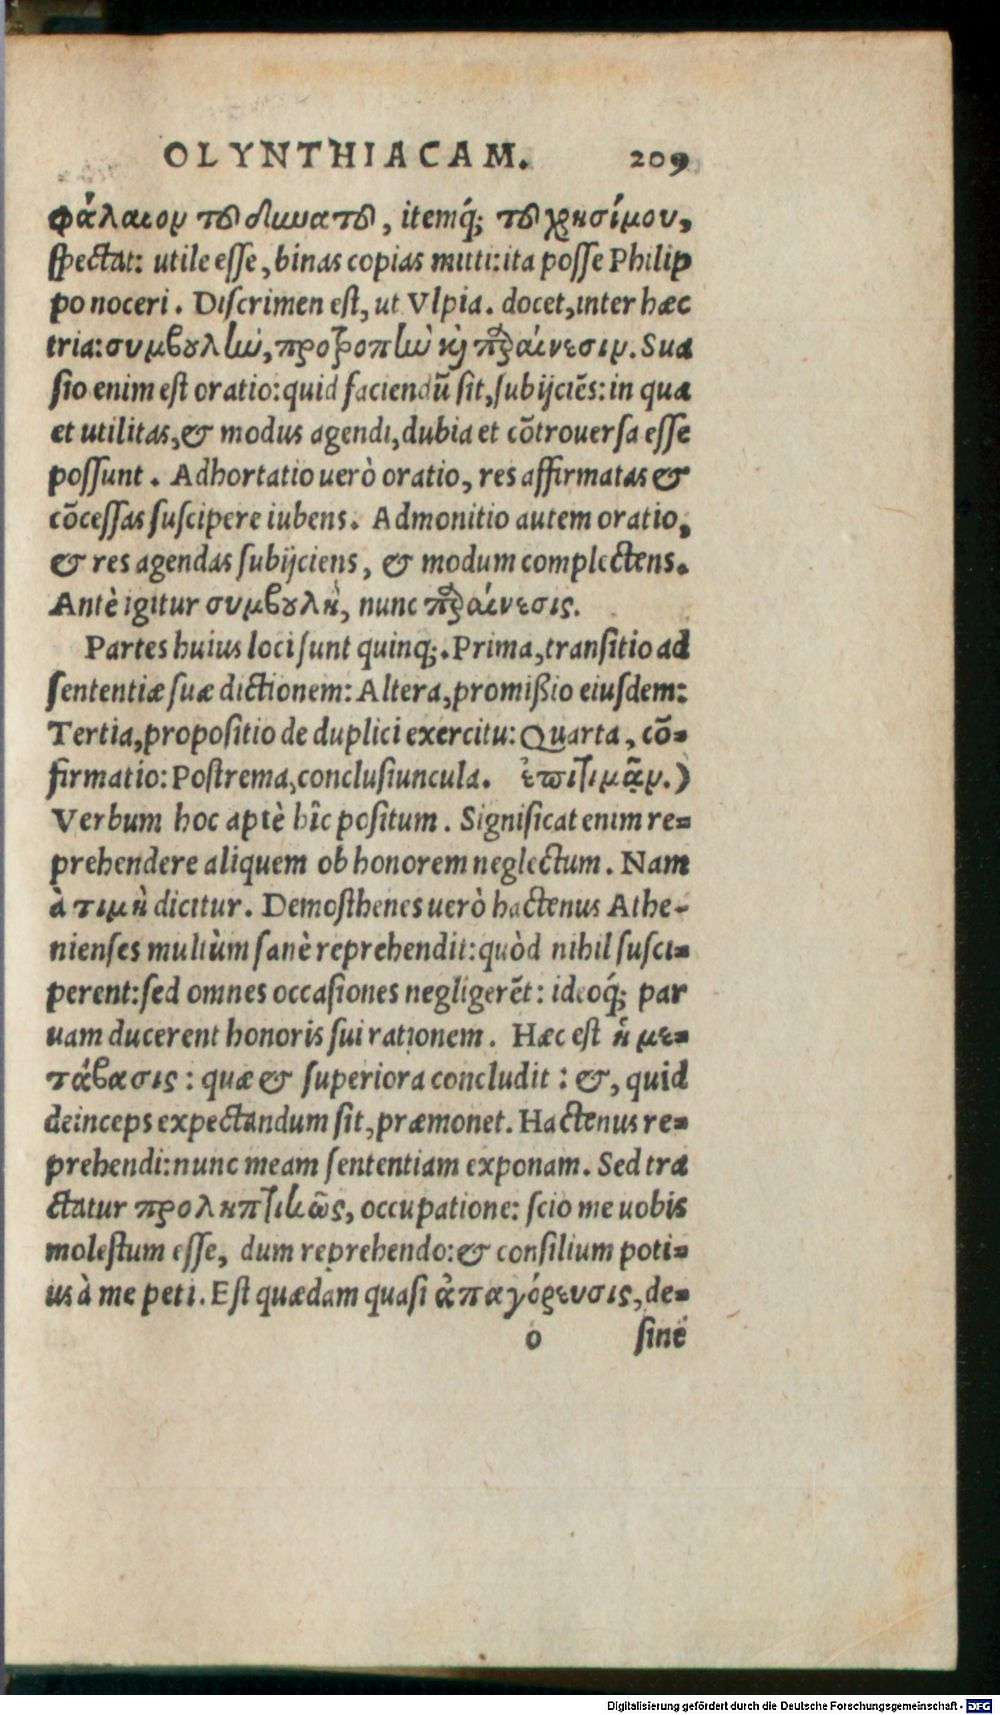 OLYNTHIACAM. 209
φάλαιον τοῦ δυνατοῦ, itemq́; τοῦ χρησίμου,
spectat: utile esse, binas copias mitti: ita posse Philip
po noceri. Discrimen est, ut Vlpia. docet, inter hæc
tria: συμβουλὴν, προτροπὴν καὶ παραίνεσιν. Sua
sio enim est oratio: quid faciendũ sit, subijciẽs: in qua
et utilitas, & modus agendi, dubia et cõtrouersa esse
possunt. Adhortatio uerò oratio, res affirmatas &
cõcessas suscipere iubens. Admonitio autem oratio,
& res agendas subijciens, & modum complectens.
Antè igitur συμβουλὴ, nunc παραίνεσις.
Partes huius loci sunt quinq;. Prima, transitio ad
sententiæ suæ dictionem: Altera, promißio eiusdem:
Tertia, propositio de duplici exercitu: Quarta, cõ-
firmatio: Postrema, conclusiuncula. ἐπιτιμᾷν.)
Verbum hoc aptè hîc positum. Significat enim re-
prehendere aliquem ob honorem neglectum. Nam
à τιμὴ dicitur. Demosthenes uerò hactenus Athe-
nienses multùm sanè reprehendit: quòd nihil susci-
perent: sed omnes occasiones negligerẽt: ideoq́; par
uam ducerent honoris sui rationem. Hæc est ἡ με-
τάβασις: quæ & superiora concludit: &, quid
deinceps expectandum sit, præmonet. Hactenus re-
prehendi: nunc meam sententiam exponam. Sed tra
ctatur προληπτικῶς, occupatione: scio me uobis
molestum esse, dum reprehendo: & consilium poti-
us à me peti. Est quædam quasi ἀπαγόρευσις, de-
o sine
Digitalisierung gefördert durch die Deutsche Forschungsgemeinschaft - DFG